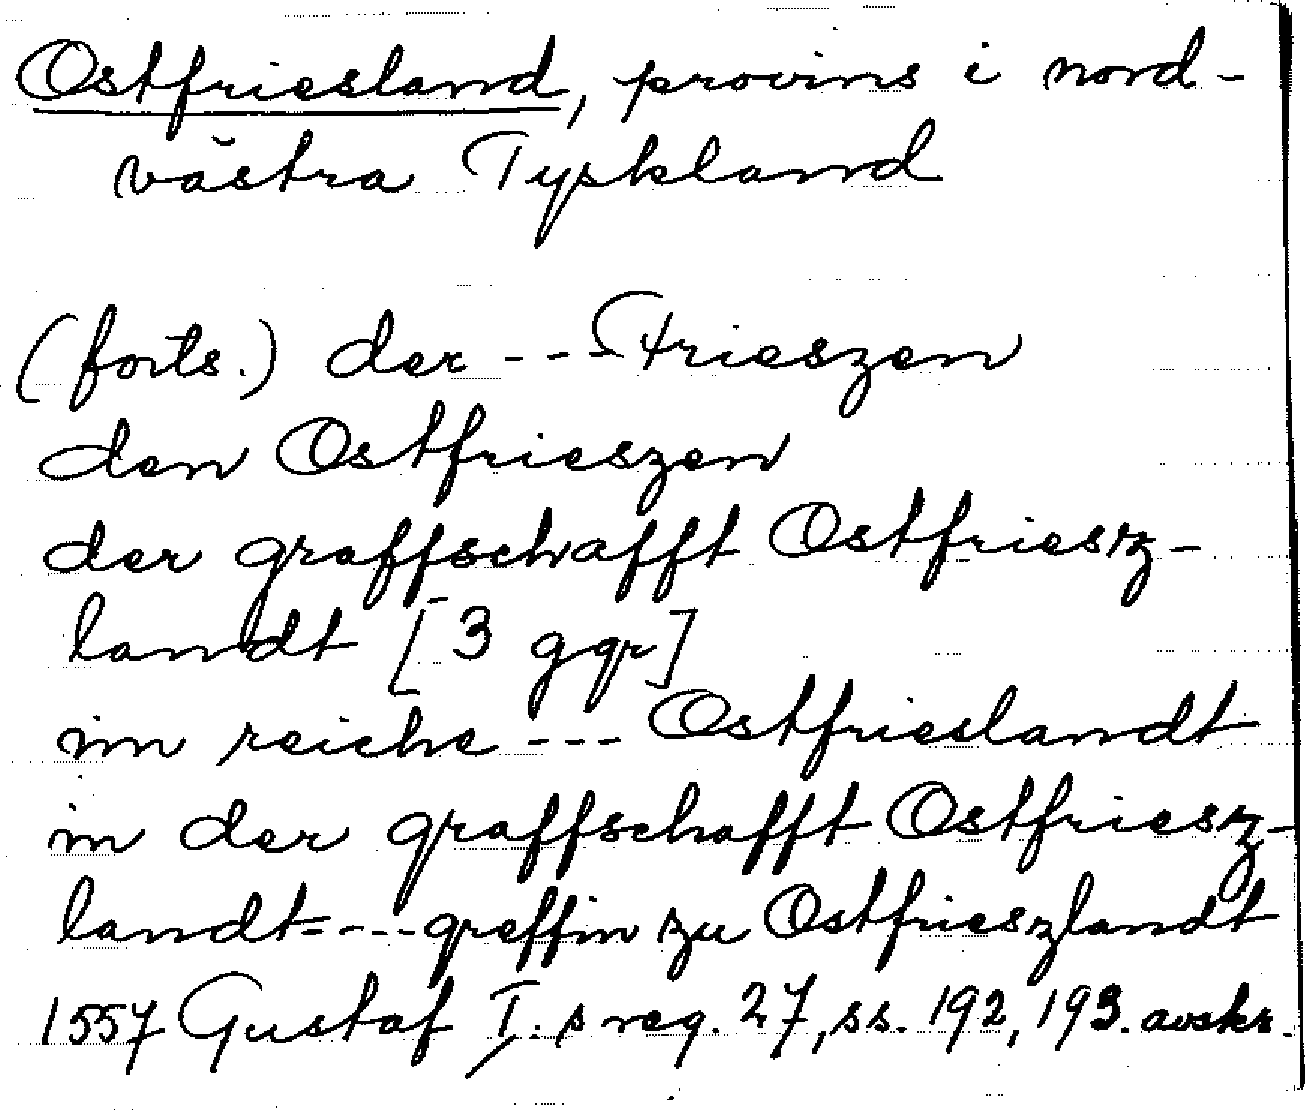 Ostfriesland, provins i nord-
västra Tyskland
(forts.) der --- Frieszen
den Ostfrieszen
der graffschafft Ostfriesz-
landt [3 ggr]
im reiche --- Ostfrieslandt
in der graffschafft Ostfriesz-
landt --- greffin zu Ostfrieszlandt
1557 Gustaf I:s reg. 27, ss. 192, 193. avskr.